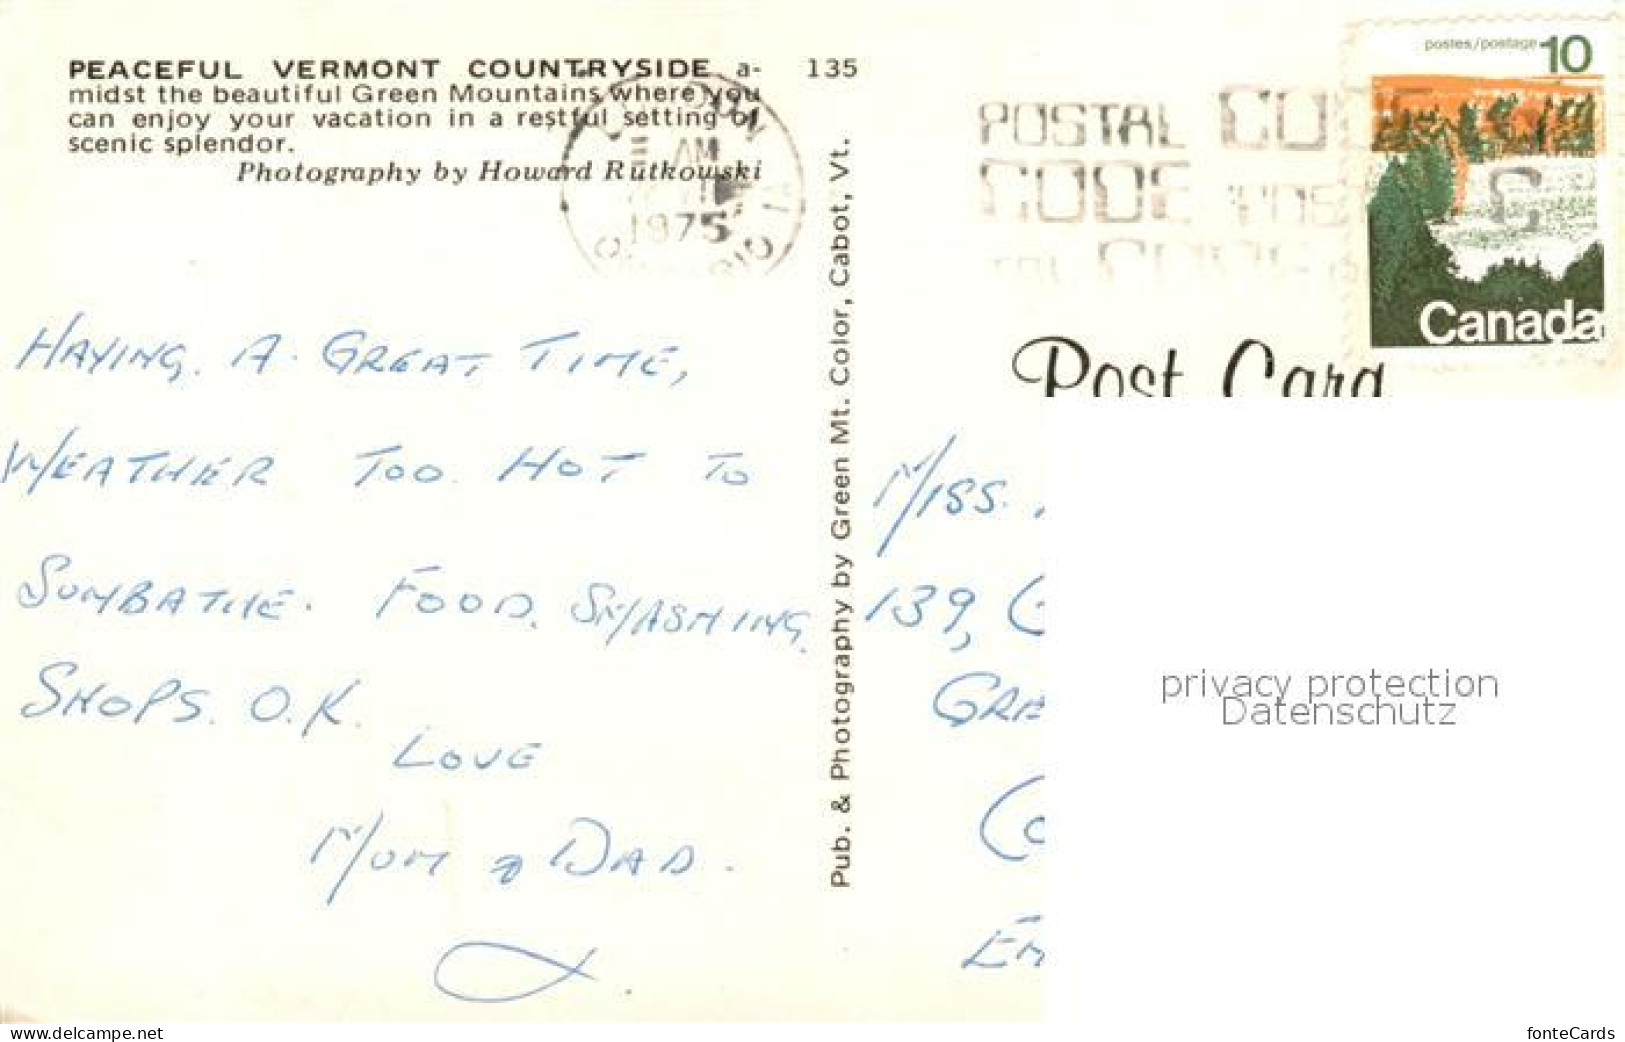 PEACEFUL VERMONT COUNTRYSIDE a-
midst the beautiful Green Mountains where you
can enjoy your vacation in a restful setting of
scenic splendor.
Photography by Howard Rutkowski
135
AM
1975
POSTAL CODE
CODE
postes/postage 10
Canada
Post Card
Pub. & Photography by Green Mt. Color, Cabot, Vt.
HAVING. A. GREAT TIME,
WEATHER TOO. HOT TO
SUNBATHE. FOOD. SMASHING.
SHOPS. O.K.
LOVE
MUM & DAD.
MISS.
139,
GRE
CO
EN
privacy protection
Datenschutz
www.delcampe.net
fonteCards